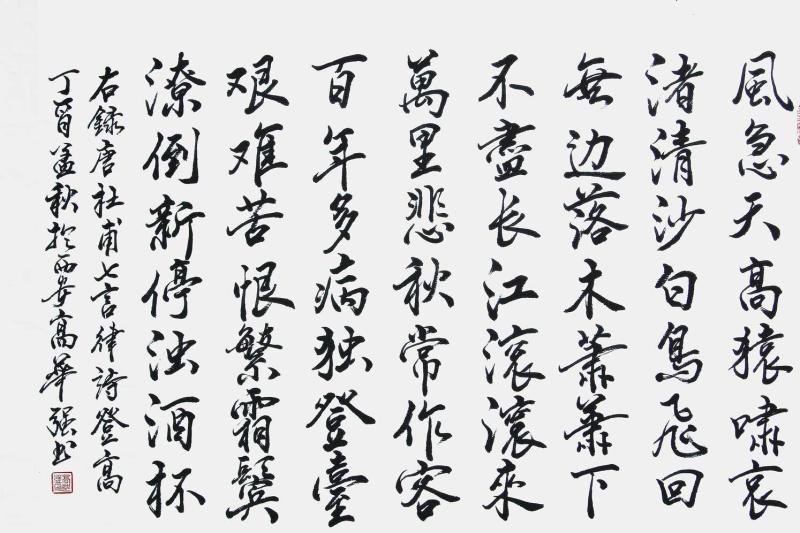 風急天高猿嘯哀
渚清沙白鳥飛回
無边落木蕭蕭下
不盡长江滚滚來
萬里悲秋常作客
百年多病独登臺
艰难苦恨繁霜鬢
潦倒新停浊酒杯
右録唐杜甫七言律詩登高
丁酉孟秋於西安高華强书